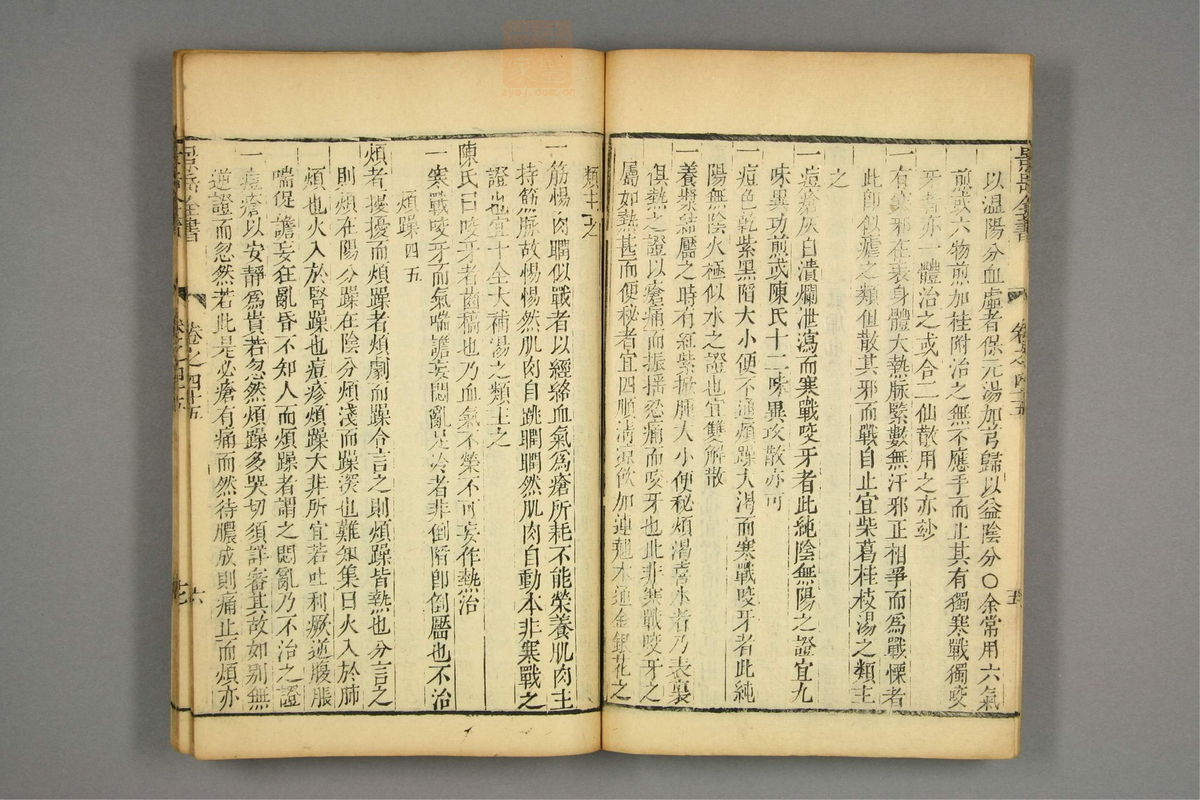 景岳全書
卷之四十五
五
以溫陽分血虛者保元湯加芎歸以益陰分○余常用六氣
煎或六物煎加桂附治之無不應手而止其有獨寒戰獨咬
牙者亦一體治之或合二仙散用之亦妙
一有寒邪在表身體大熱脉緊數無汗邪正相爭而爲戰慄者
此卽似瘧之類但散其邪而戰自止宜柴葛桂枝湯之類主
之
一痘瘡灰白潰爛泄瀉而寒戰咬牙者此純陰無陽之證宜九
味異功煎或陳氏十二味異攻散亦可
一痘色乾紫黑陷大小便不通煩躁大渴而寒戰咬牙者此純
陽無陰火極似水之證也宜雙解散
一養漿結靨之時有紅紫掀腫大小便秘煩渴喜水者乃表裏
俱熱之證以瘡痛而振揺忍痛而咬牙也此非寒戰咬牙之
屬如熱甚而便秘者宜四順淸凉飲加連翹木通金銀花之
類主之
一筋惕肉瞤似戰者以經絡血氣爲瘡所耗不能榮養肌肉主
持筋脉故惕惕然肌肉自跳瞤瞤然肌肉自動本非寒戰之
證也宜十全大補湯之類主之
陳氏曰咬牙者齒槁也乃血氣不榮不可妄作熱治
一寒戰咬牙而氣喘譫妄悶亂足冷者非倒陷卽倒靨也不治
煩躁四五
煩者擾擾而煩躁者煩劇而躁合言之則煩躁皆熱也分言之
則煩在陽分躁在陰分煩淺而躁深也難知集曰火入於肺
煩也火入於腎躁也痘疹煩躁大非所宜若吐利厥逆腹脹
喘促譫妄狂亂昏不知人而煩躁者謂之悶亂乃不治之證
一痘瘡以安靜爲貴若忽然煩躁多哭切須詳審其故如别無
逆證而忽然若此是必瘡有痛而然待膿成則痛止而煩亦
景岳全書
卷之四十五
六